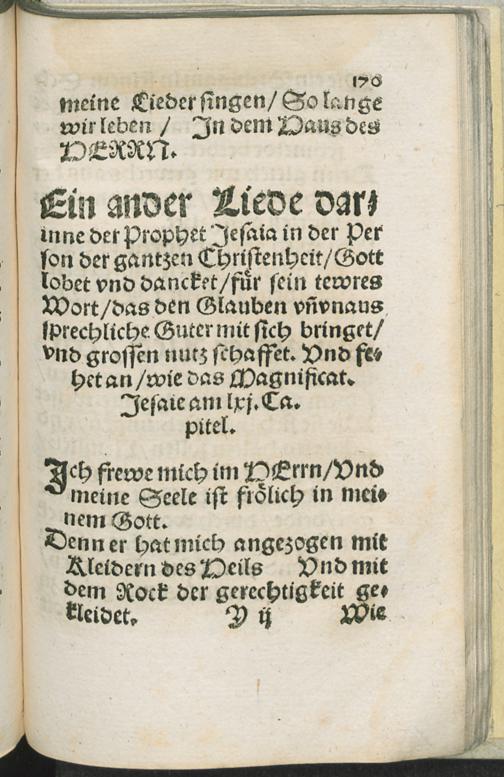 170
meine Lieder singen/ So lange
wir leben / In dem Haus des
HERRN.
Ein ander Liede dar⸗
inne der Prophet Jesaia in der Per
son der gantzen Christenheit/Gott
lobet vnd dancket/für sein tewres
Wort/das den Glauben vñvnaus
sprechliche Guter mit sich bringet/
vnd grossen nutz schaffet. Vnd fe⸗
het an/wie das Magnificat.
Jesaie am lxj. Ca.
pitel.
Ich frewe mich im HErrn/Vnd
meine Seele ist frölich in mei⸗
nem Gott.
Denn er hat mich angezogen mit
Kleidern des Heils Vnd mit
dem Rock der gerechtigkeit ge⸗
kleidet. Y ij Wie